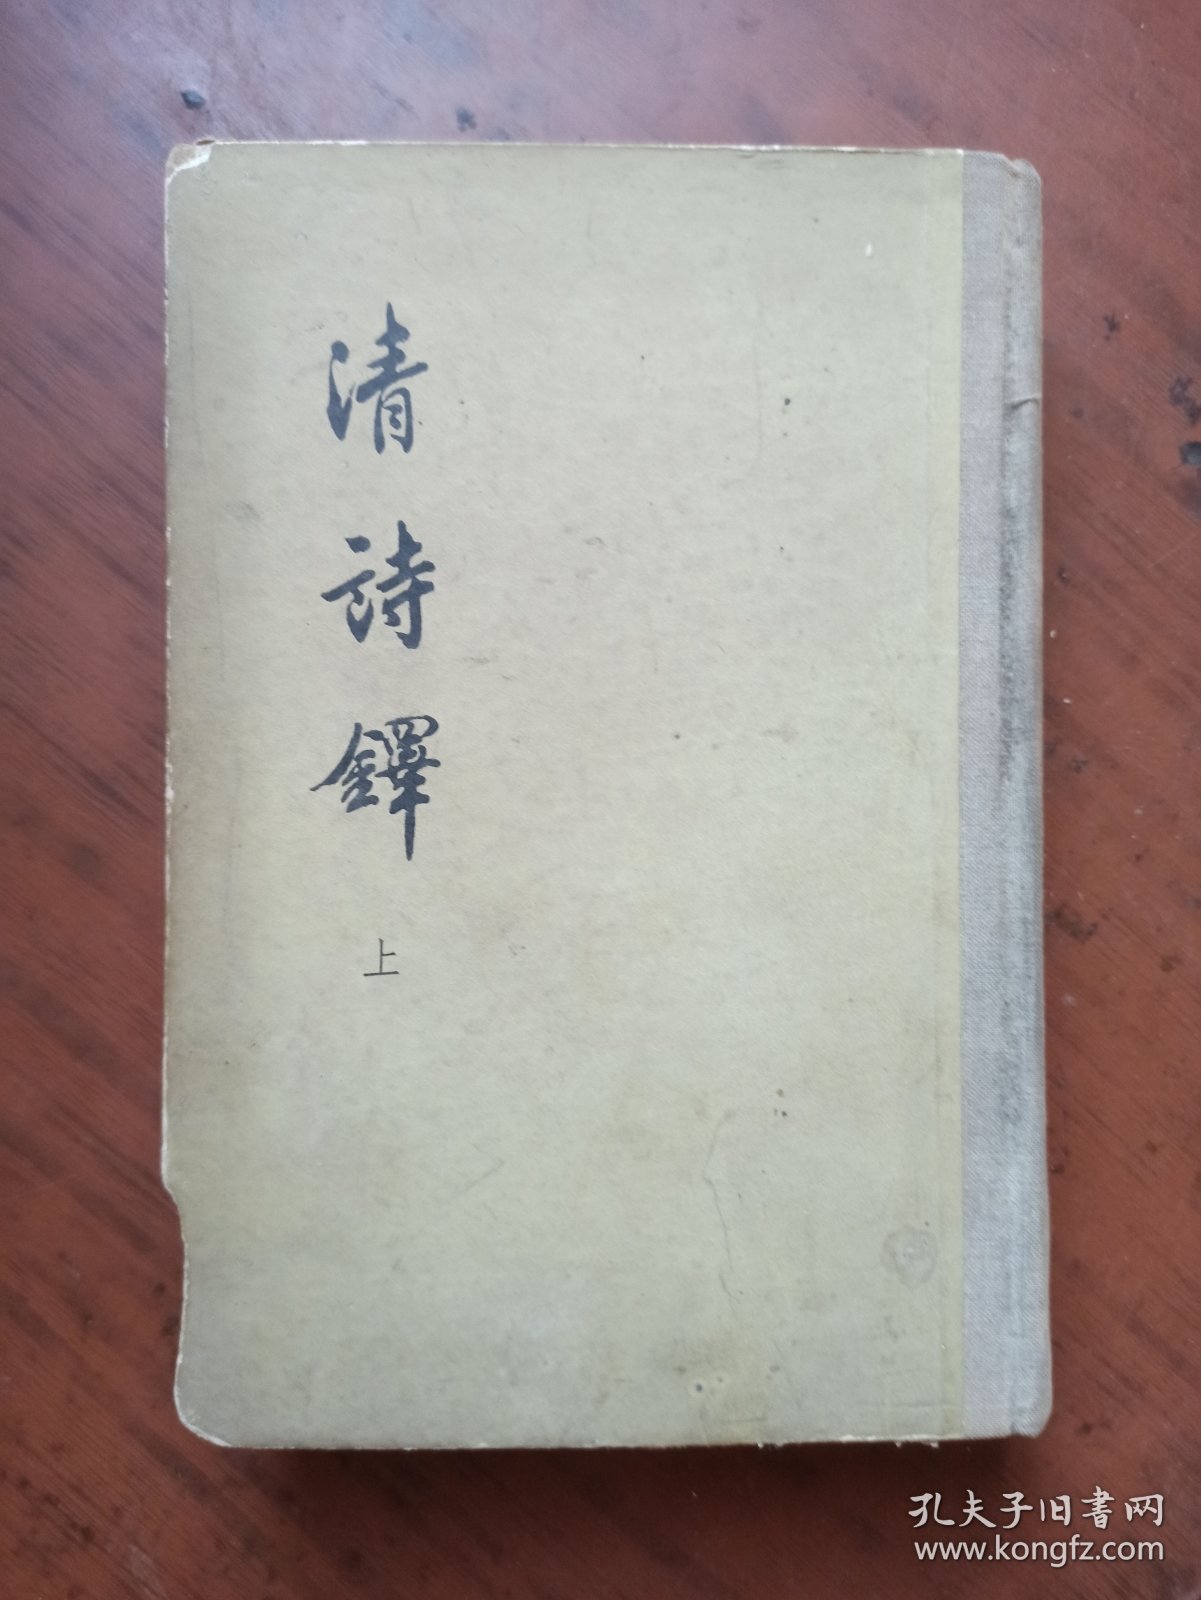 清詩鐸
上
孔夫子旧書网
www.kongfz.com